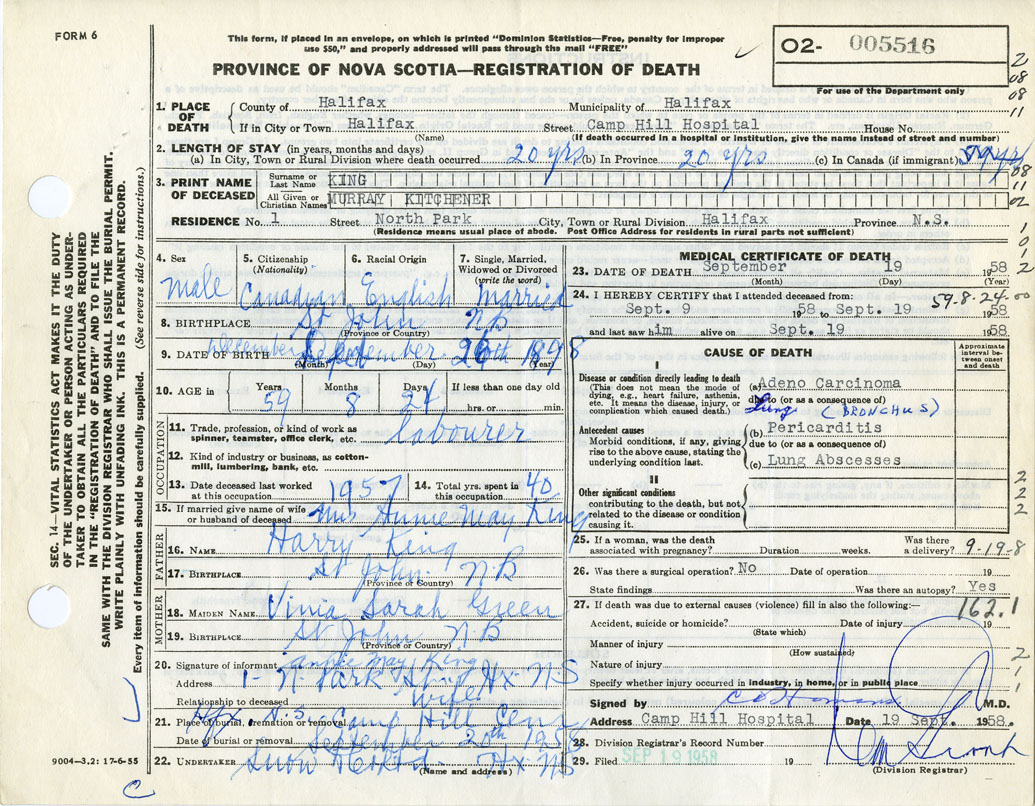 FORM 6
This form, if placed in an envelope, on which is printed "Dominion Statistics—Free, penalty for improper
use $50," and properly addressed will pass through the mail "FREE"
O2- 005516
For use of the Department only
PROVINCE OF NOVA SCOTIA—REGISTRATION OF DEATH
2
08
08
11
1. PLACE OF DEATH
County of Halifax Municipality of Halifax
If in City or Town Halifax Street Camp Hill Hospital House No.
(Name) (If death occurred in a hospital or institution, give the name instead of street and number)
2. LENGTH OF STAY (in years, months and days)
(a) In City, Town or Rural Division where death occurred 20 yrs (b) In Province 20 yrs (c) In Canada (if immigrant)
3. PRINT NAME OF DECEASED
Surname or Last Name KING
All Given or Christian Names MURRAY KITCHENER
08
11
02
RESIDENCE No. 1 Street North Park City, Town or Rural Division Halifax Province N.S.
(Residence means usual place of abode. Post Office Address for residents in rural parts not sufficient)
1
0
1
2
SEC. 14—VITAL STATISTICS ACT MAKES IT THE DUTY
OF THE UNDERTAKER OR PERSON ACTING AS UNDER-
TAKER TO OBTAIN ALL THE PARTICULARS REQUIRED
IN THE "REGISTRATION OF DEATH" AND TO FILE THE
SAME WITH THE DIVISION REGISTRAR WHO SHALL ISSUE THE BURIAL PERMIT.
WRITE PLAINLY WITH UNFADING INK. THIS IS A PERMANENT RECORD.
Every item of information should be carefully supplied. (See reverse side for instructions.)
4. Sex 5. Citizenship (Nationality) 6. Racial Origin 7. Single, Married, Widowed or Divorced (write the word)
Male Canadian English Married
8. BIRTHPLACE St John NB
(Province or Country)
9. DATE OF BIRTH December 26th 1898
(Month) (Day) (Year)
10. AGE in Years Months Days If less than one day old
59 8 24 hrs. or min.
OCCUPATION
11. Trade, profession, or kind of work as
spinner, teamster, office clerk, etc. labourer
12. Kind of industry or business, as cotton-
mill, lumbering, bank, etc.
13. Date deceased last worked at this occupation 1957 14. Total yrs. spent in this occupation 40
15. If married give name of wife
or husband of deceased Mrs Annie May King
FATHER
16. NAME Harry King
17. BIRTHPLACE St John N.B
(Province or Country)
MOTHER
18. MAIDEN NAME Vinia Sarah Green
19. BIRTHPLACE St John N.B
(Province or Country)
20. Signature of informant Annie May King
Address 1- N. Park Hx. N S
Relationship to deceased Wife
Hfx. N.S.
21. Place of burial, cremation or removal Camp Hill Cem
Date of burial or removal September 20th 1958
22. UNDERTAKER Snow Hx NS
(Name and address)
9004—3.2: 17-6-55
C
MEDICAL CERTIFICATE OF DEATH
23. DATE OF DEATH September 19 1958
(Month) (Day) (Year)
24. I HEREBY CERTIFY that I attended deceased from: 59.8.24.00
Sept. 9 1958 to Sept. 19 1958
and last saw him alive on Sept. 19 1958
CAUSE OF DEATH
Approximate interval between onset and death
I
Disease or condition directly leading to death
(This does not mean the mode of
dying, e.g., heart failure, asthenia,
etc. It means the disease, injury, or
complication which caused death.)
(a) Adeno Carcinoma
due to (or as a consequence of)
Lung (BRONCHUS)
Antecedent causes
Morbid conditions, if any, giving
rise to the above cause, stating the
underlying condition last.
(b) Pericarditis
due to (or as a consequence of)
(c) Lung Abscesses
II
Other significant conditions
contributing to the death, but not
related to the disease or condition
causing it.
2
2
2
25. If a woman, was the death
associated with pregnancy? Duration weeks. Was there a delivery? 9-19-8
26. Was there a surgical operation? No Date of operation 19
State findings Was there an autopsy? Yes
27. If death was due to external causes (violence) fill in also the following:— 162.1
Accident, suicide or homicide? Date of injury 19
(State which)
Manner of injury
(How sustained)
Nature of injury
2
1
Specify whether injury occurred in industry, in home, or in public place
Signed by M.D.
Address Camp Hill Hospital Date 19 Sept. 1958.
28. Division Registrar's Record Number
29. Filed SEP 19 1958 19
(Division Registrar)